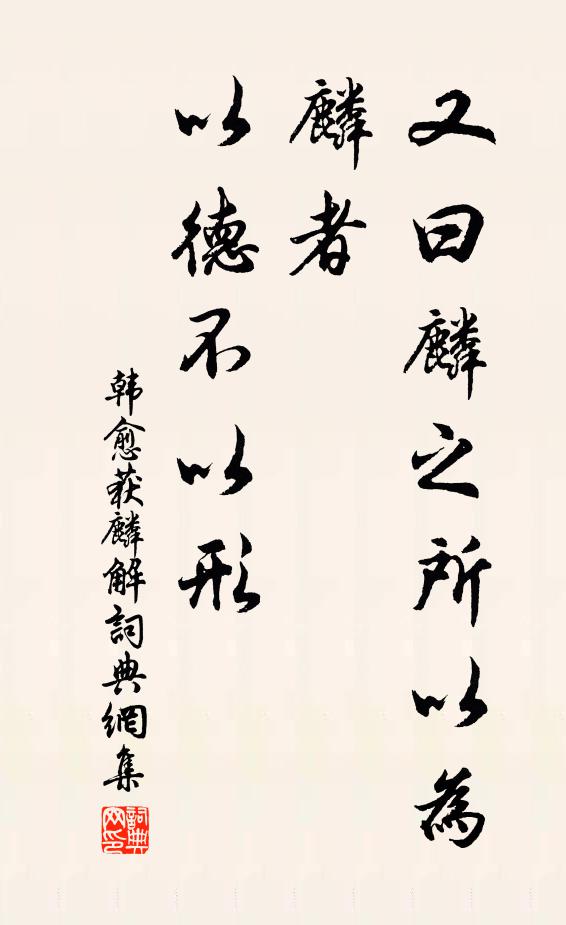 又曰麟之所以為
麟者
以德不以形
韩愈获麟解詞典網集
詞典網印